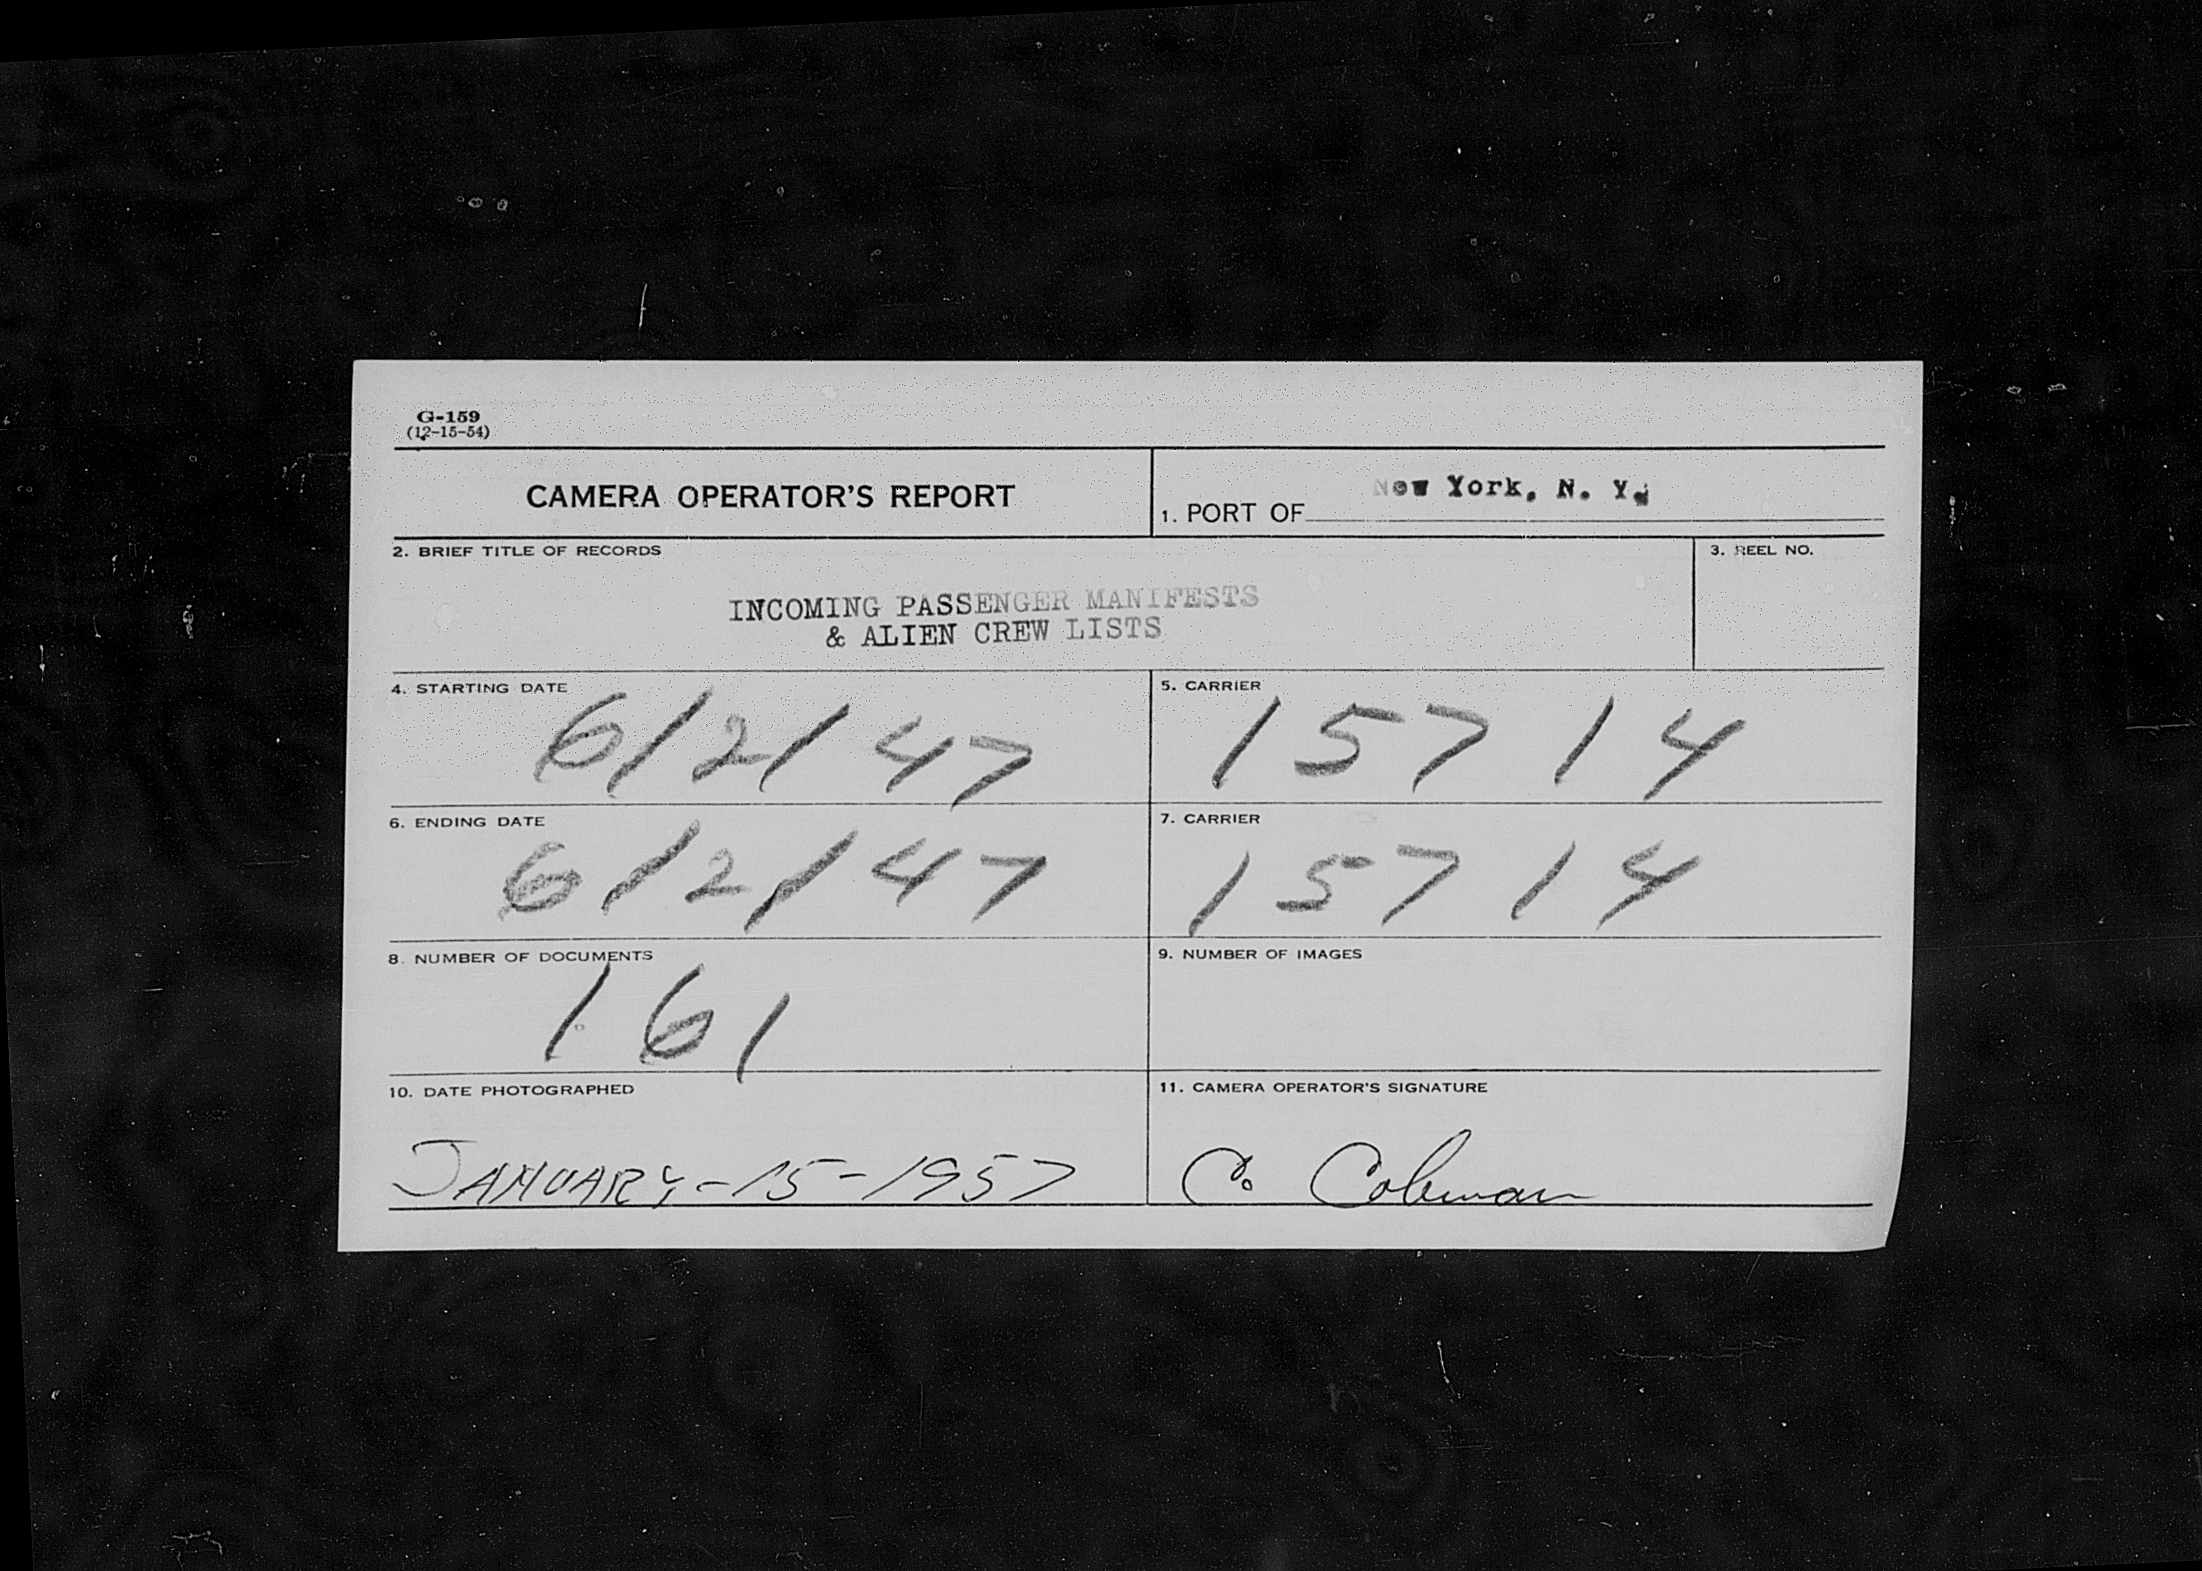 G-159
(12-15-54)
CAMERA OPERATOR'S REPORT
1. PORT OF New York, N. Y.
2. BRIEF TITLE OF RECORDS
INCOMING PASSENGER MANIFESTS
& ALIEN CREW LISTS
3. REEL NO.
4. STARTING DATE
6/2/47
5. CARRIER
15714
6. ENDING DATE
6/2/47
7. CARRIER
15714
8. NUMBER OF DOCUMENTS
161
9. NUMBER OF IMAGES
10. DATE PHOTOGRAPHED
JANUARY-15-1957
11. CAMERA OPERATOR'S SIGNATURE
C. Coleman